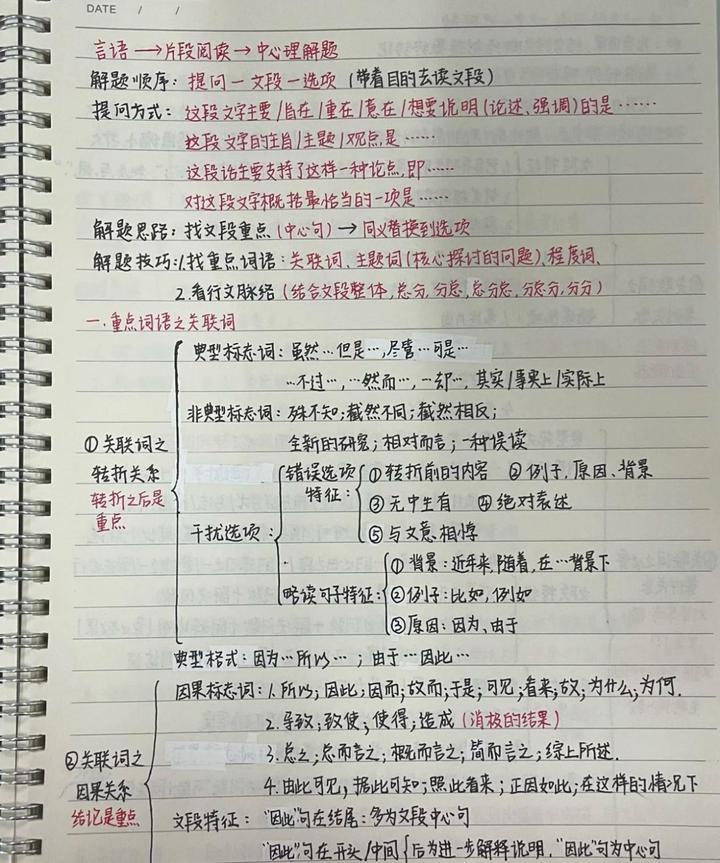 DATE / /
言语→片段阅读→中心理解题
解题顺序：提问—文段—选项（带着目的去读文段）
提问方式：这段文字主要/旨在/重在/意在/想要说明（论述、强调）的是……
这段文字的主旨/主题/观点是……
这段话主要支持了这样一种论点，即……
对这段文字概括最恰当的一项是……
解题思路：找文段重点（中心句）→同义替换到选项
解题技巧：1.找重点词语：关联词、主题词（核心探讨的问题）、程度词、
2.看行文脉络（结合文段整体，总分，分总，总分总，分总分，分分）
一.重点词语之关联词
①关联词之
转折关系
转折之后是
重点
典型标志词：虽然…但是…，尽管…可是…
…不过…，…然而…，…却…，其实/事实上/实际上
非典型标志词：殊不知；截然不同；截然相反；
全新的研究；相对而言；一种误读
干扰选项：
错误选项
特征：
①转折前的内容 ②例子，原因、背景
③无中生有 ④绝对表述
⑤与文意相悖
略读句子特征：
①背景：近年来，随着，在…背景下
②例子：比如，例如
③原因：因为、由于
②关联词之
因果关系
结论是重点
典型格式：因为…所以…；由于…因此…
因果标志词：1.所以；因此；因而；故而；于是；可见；看来；故；为什么；为何.
2.导致；致使；使得；造成（消极的结果）
3.总之；总而言之；概而言之；简而言之；综上所述.
4.由此可见，据此可知；照此看来；正因如此；在这样的情况下
文段特征："因此"句在结尾：多为文段中心句
"因此"句在开头/中间{后为进一步解释说明，"因此"句为中心句